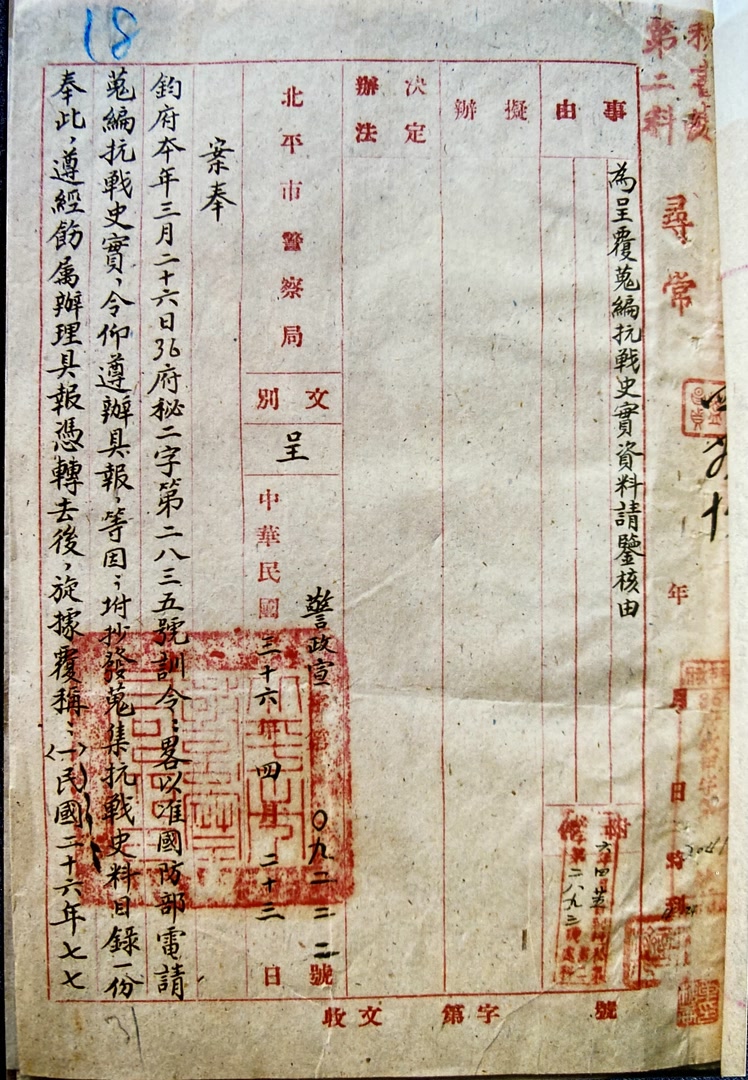 18
秘書處
第二科
尋常
年 月 日 時到
事由
為呈覆蒐編抗戰史實資料請鑒核由
附件
擬辦
決定辦法
北平市警察局
文別
呈
警政宣字第〇九二二號
中華民國三十六年四月二十三日
案奉
鈞府本年三月二十六日36府秘二字第二八三五號訓令：畧以准國防部電請
蒐編抗戰史實，令仰遵辦具報，等因；坿抄發蒐集抗戰史料目錄一份
奉此，遵經飭属辦理具報憑轉去後，旋據覆稱：㈠民國二十六年七七
收文 字第 號
31